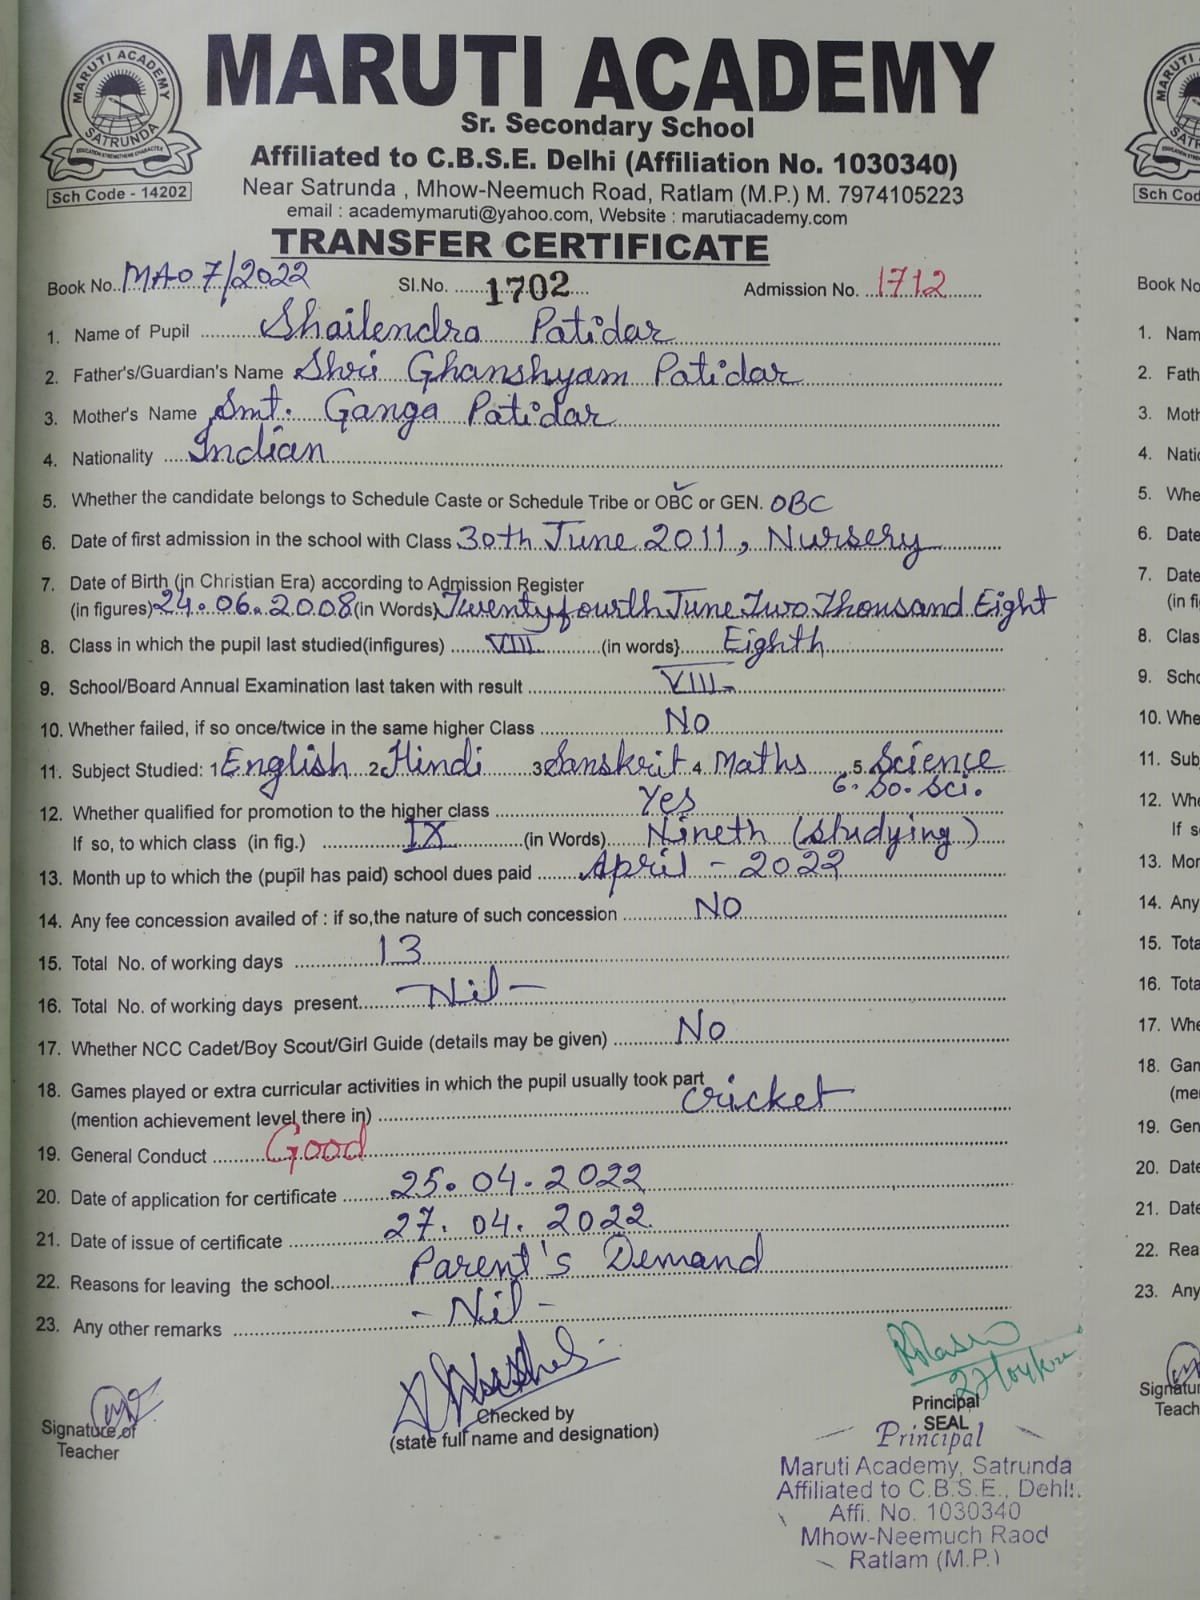 MARUTI ACADEMY
SATRUNDA
EDUCATION STRENGTHENS CHARACTER
Sch Code - 14202
MARUTI ACADEMY
Sr. Secondary School
Affiliated to C.B.S.E. Delhi (Affiliation No. 1030340)
Near Satrunda , Mhow-Neemuch Road, Ratlam (M.P.) M. 7974105223
email : academymaruti@yahoo.com, Website : marutiacademy.com
TRANSFER CERTIFICATE
Book No. MA07/2022 Sl.No. 1702 Admission No. 1712
1. Name of Pupil Shailendra Patidar
2. Father's/Guardian's Name Shri Ghanshyam Patidar
3. Mother's Name Smt. Ganga Patidar
4. Nationality Indian
5. Whether the candidate belongs to Schedule Caste or Schedule Tribe or OBC or GEN. OBC
6. Date of first admission in the school with Class 30th June 2011, Nursery
7. Date of Birth (in Christian Era) according to Admission Register
(in figures) 24.06.2008 (in Words) Twenty fourth June Two Thousand Eight
8. Class in which the pupil last studied(infigures) VIII (in words} Eighth
9. School/Board Annual Examination last taken with result VIII
10. Whether failed, if so once/twice in the same higher Class No
11. Subject Studied: 1 English 2 Hindi 3 Sanskrit 4 Maths 5. Science
6. So. Sci.
12. Whether qualified for promotion to the higher class Yes
If so, to which class (in fig.) IX (in Words) Nineth (studying)
13. Month up to which the (pupil has paid) school dues paid April - 2022
14. Any fee concession availed of : if so,the nature of such concession No
15. Total No. of working days 13
16. Total No. of working days present - Nil -
17. Whether NCC Cadet/Boy Scout/Girl Guide (details may be given) No
18. Games played or extra curricular activities in which the pupil usually took part
(mention achievement level there in) cricket
19. General Conduct Good
20. Date of application for certificate 25.04.2022
21. Date of issue of certificate 27.04.2022
22. Reasons for leaving the school Parent's Demand
23. Any other remarks - Nil -
Signature of
Teacher
Checked by
(state full name and designation)
Principal
SEAL
Principal
Maruti Academy, Satrunda
Affiliated to C.B.S.E., Dehli.
Affi. No. 1030340
Mhow-Neemuch Raod
Ratlam (M.P.)
MARUTI
Sch Cod
Book No
1. Nam
2. Fath
3. Moth
4. Natio
5. Whe
6. Date
7. Date
(in fi
8. Clas
9. Scho
10. Whe
11. Sub
12. Whe
If s
13. Mor
14. Any
15. Tota
16. Tota
17. Whe
18. Gam
(me
19. Gen
20. Date
21. Date
22. Rea
23. Any
Signatur
Teach